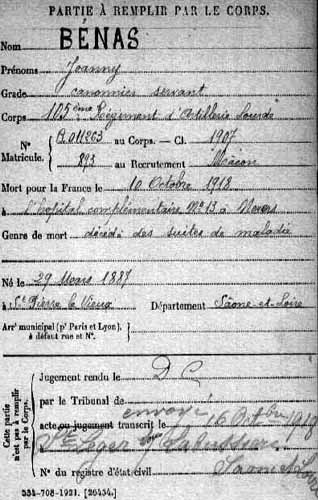 PARTIE À REMPLIR PAR LE CORPS.
Nom BÉNAS
Prénoms Joanny
Grade canonnier servant
Corps 105ème Régiment d'Artillerie Lourde
N° Matricule. au Corps. — Cl. 1907
893 au Recrutement Mâcon
Mort pour la France le 10 Octobre 1918
à l'Hopital complémentaire N° 13 à Nevers
Genre de mort décédé des suites de maladie
Né le 29 Mars 1887
à St Pierre le Vieux Département Saône-et-Loire
Arrt municipal (pr Paris et Lyon),
à défaut rue et N°.
Cette partie n'est pas à remplir par le Corps.
Jugement rendu le D C
par le Tribunal de envoyé
acte ou jugement transcrit le 16 Octbre 1919
St Léger sous la Bussière
Saone & Loire
N° du registre d'état civil
534-708-1921. [26434.]